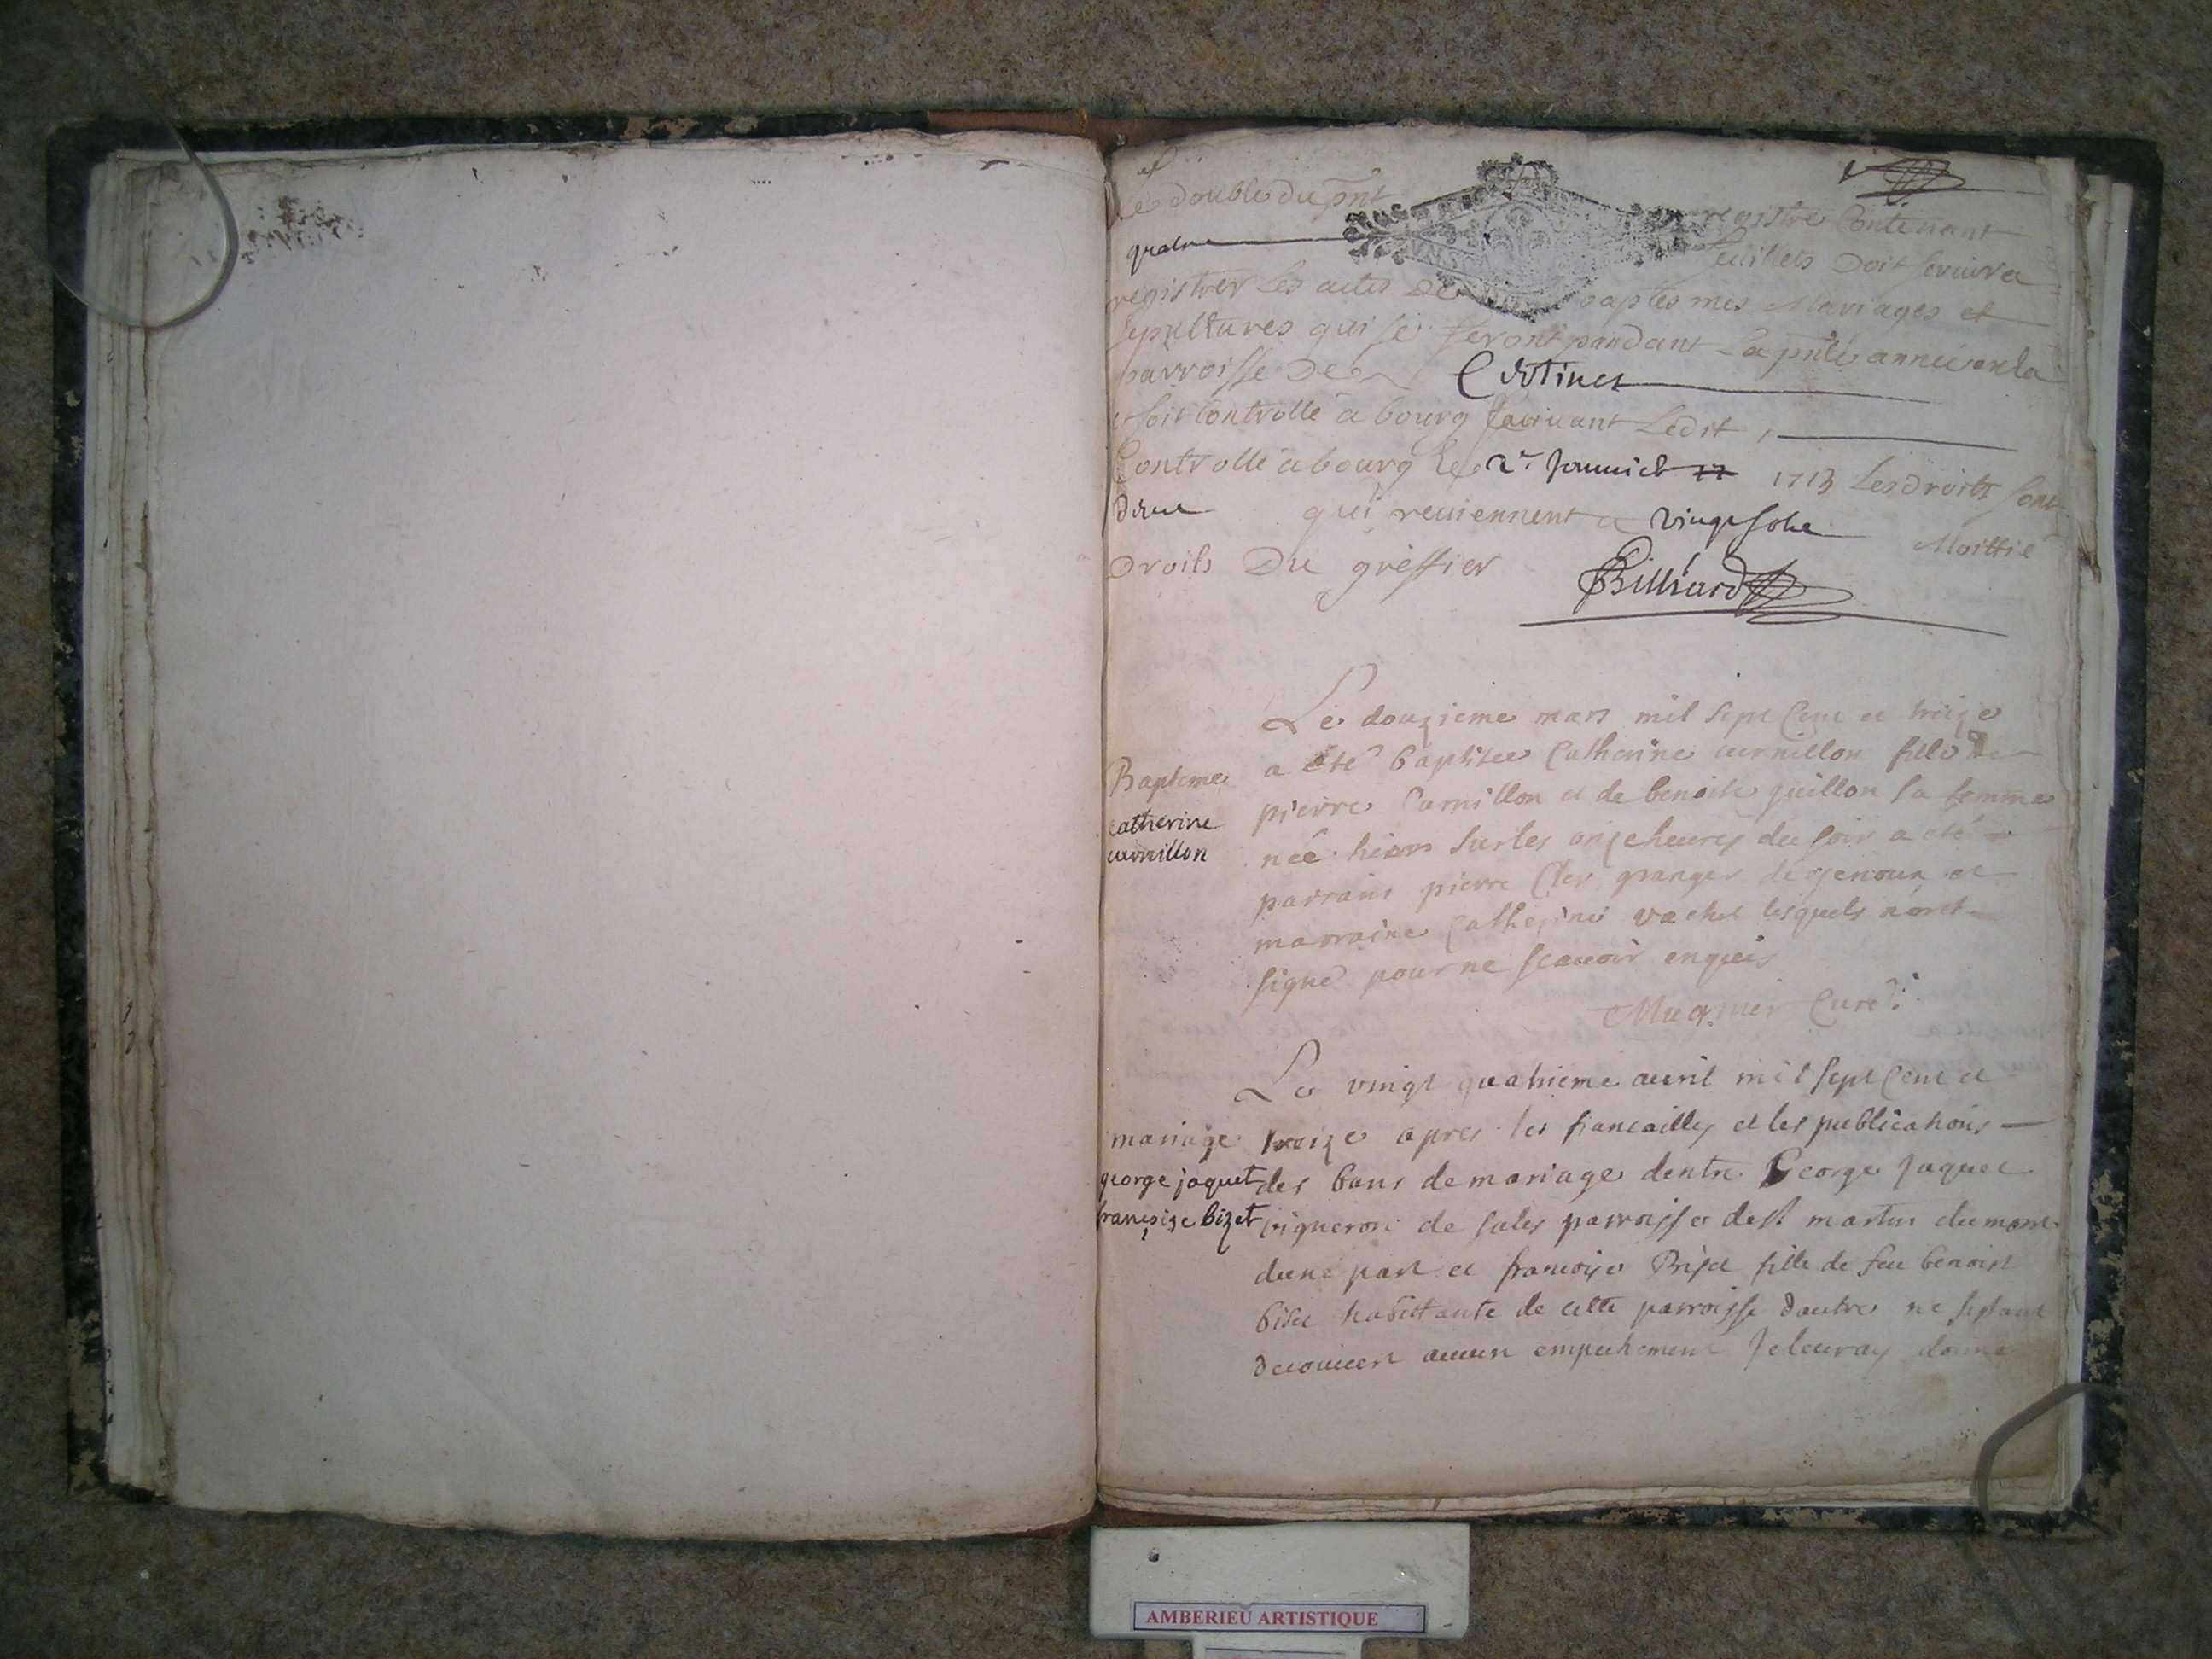 Le double du pnt registre Contenant
quatre feuillets Doit servir a
registrer Les actes De baptesmes Mariages et
sepultures qui se feront pandant La pnte annee en la
parroisse De
soit Controlle a bourg suivant Ledit
Controllé a bourg Le 2e Janvier 1713 Les droits sont
deue qui reviennent a vingt sols Moittié
Droits Du greffier Billiard
Le douzieme mars mil sept Cent et treize
Bapteme a eté baptisee Catherine cuvnillon fille de
catherine pierre Curnillon et de benoite guillon sa femme
née hier sur les onze heures du soir a eté
parrain pierre granger de genoux et
marraine Catherine vachet lesquels n'ont
signé pour ne scavoir enquis
Mugnier Curé
Le vingt quatrieme avril mil sept Cent et
mariage treize apres les fiancailles et les publications
george jaquet des bans de mariage dentre George Jaquet
françoise bizet vigneron de sales parroisse de st martin du mont
dune part et francoise Bizet fille de feu benoist
bizet habittante de cette parroisse dautre ne sestant
decouvert aucun empechement Je leur ay donné
AMBERIEU ARTISTIQUE